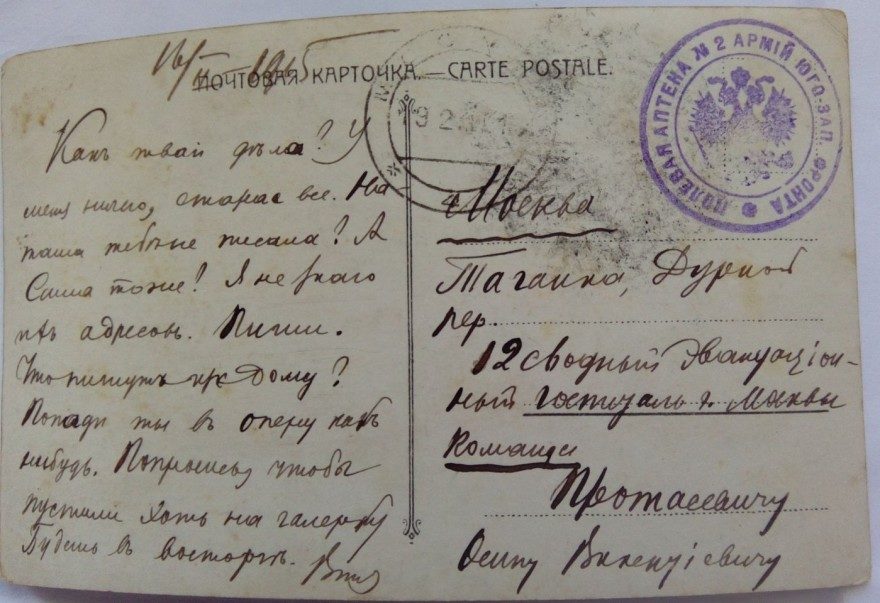 1915
ПОЧТОВАЯ КАРТОЧКА. — CARTE POSTALE.
ПОЛЕВАЯ АПТЕКА № 2 АРМІЙ ЮГО-ЗАП. ФРОНТА
Какъ твои дѣла? У
меня ничего, старое все. На
таша тебѣ не писала? А
Саша тоже! Я не знаю
ихъ адресовъ. Пиши.
Что пишутъ изъ дому?
Попади ты въ оперу какъ
нибудь. Попросись чтобы
пустили хоть на галерку
Будешь въ восторгѣ.
Москва
Таганка, Дурной
пер.
12 сводный Эвакуаціон-
ный госпиталь г. Москвы
Команда
Протасевичу
Осипу Викентіевичу